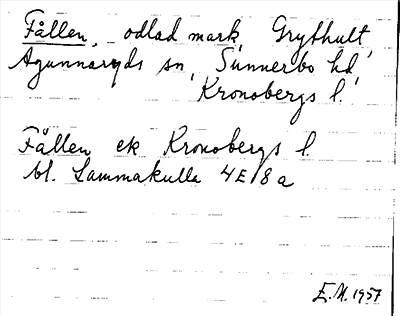 Fållen, odlad mark, Grythult,
Agunnaryds sn, Sunnerbo hd,
Kronobergs l.
Fållen ek Kronobergs l.
bl. Lammakulla 4E/8a
E.M. 1957